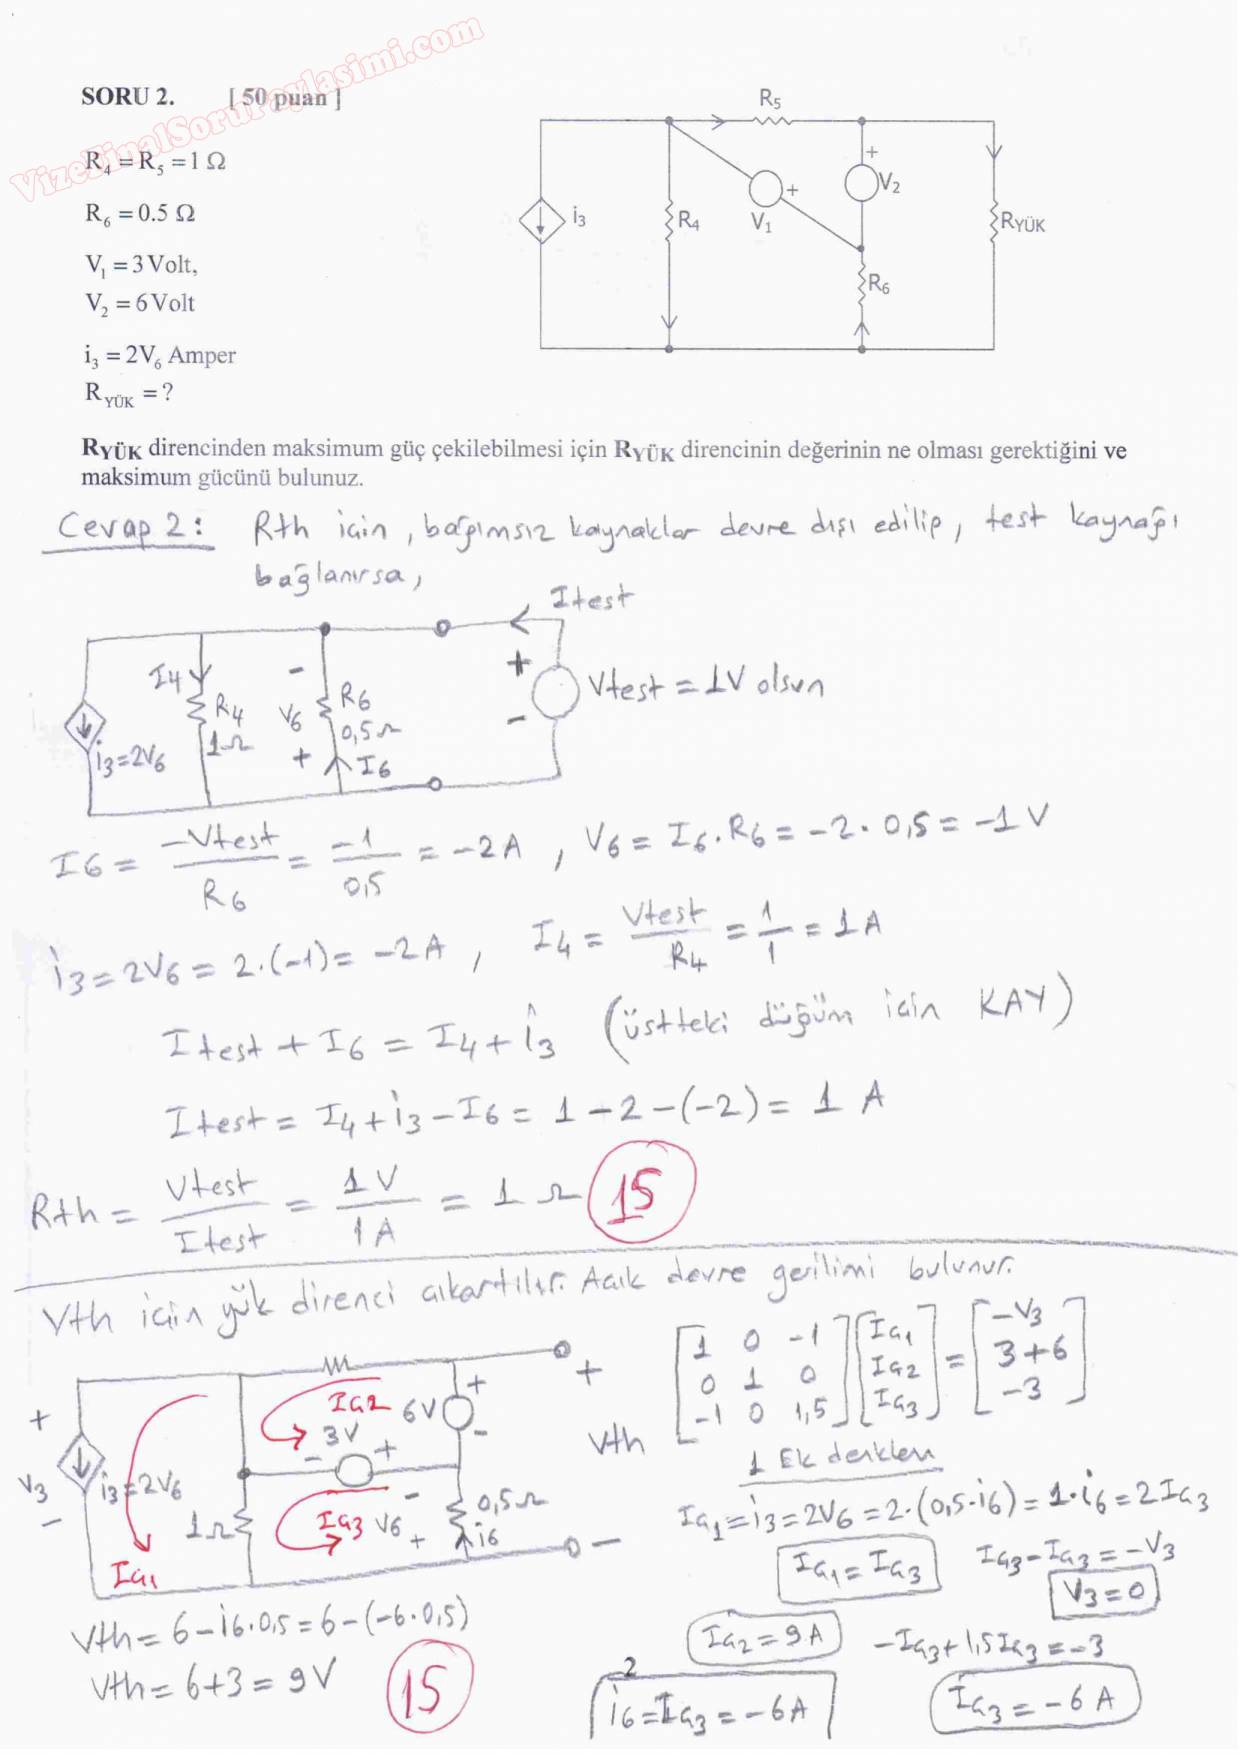 VizeFinalSoruPaylasimi.com
SORU 2. [ 50 puan ]
R4 = R5 = 1 Ω
R6 = 0.5 Ω
V1 = 3 Volt,
V2 = 6 Volt
i3 = 2V6 Amper
RYÜK = ?
R5
i3
R4
V1
+
+
V2
R6
RYÜK
RYÜK direncinden maksimum güç çekilebilmesi için RYÜK direncinin değerinin ne olması gerektiğini ve
maksimum gücünü bulunuz.
Cevap 2: Rth için, bağımsız kaynaklar devre dışı edilip, test kaynağı
bağlanırsa,
Itest
I4
R4
1Ω
i3=2V6
-
V6
+
R6
0,5Ω
I6
+
-
Vtest = 1V olsun
I6 = -Vtest / R6 = -1 / 0,5 = -2A , V6 = I6.R6 = -2.0,5 = -1 V
i3 = 2V6 = 2.(-1) = -2A , I4 = Vtest / R4 = 1 / 1 = 1A
Itest + I6 = I4 + i3 (üstteki düğüm için KAY)
Itest = I4 + i3 - I6 = 1 - 2 - (-2) = 1 A
Rth = Vtest / Itest = 1V / 1A = 1 Ω 15
Vth için yük direnci çıkartılır. Açık devre gerilimi bulunur.
+
V3
-
i3=2V6
Ia1
1Ω
Ia2
3V
- +
6V
+
-
Ia3
-
V6
+
0,5Ω
i6
+
Vth
-
[1 0 -1] [Ia1] = [-V3]
[0 1 0] [Ia2] [3+6]
[-1 0 1,5] [Ia3] [-3]
1 Ek denklem
Ia1 = i3 = 2V6 = 2.(0,5.i6) = 1.i6 = 2Ia3
Ia1 = Ia3
Ia3 - Ia3 = -V3
V3 = 0
Vth = 6 - i6.0,5 = 6 - (-6.0,5)
Vth = 6+3 = 9V
15
Ia2 = 9A
-Ia3 + 1,5Ia3 = -3
2
i6 = Ia3 = -6A
Ia3 = -6 A